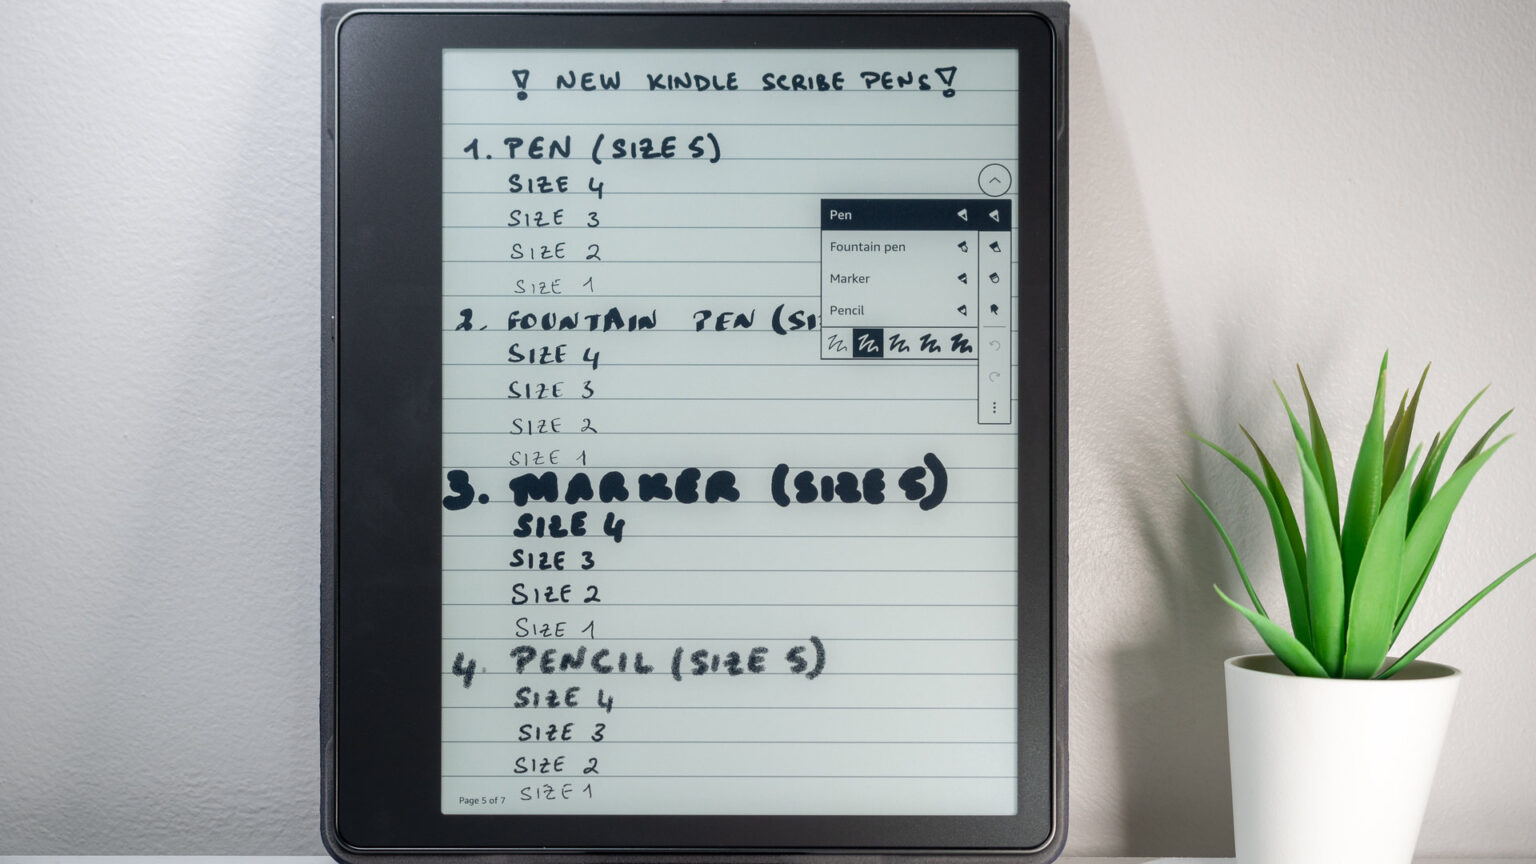 ! NEW KINDLE SCRIBE PENS!
1. PEN (SIZE 5)
SIZE 4
SIZE 3
SIZE 2
SIZE 1
2. FOUNTAIN PEN (SI
SIZE 4
SIZE 3
SIZE 2
SIZE 1
3. MARKER (SIZE 5)
SIZE 4
SIZE 3
SIZE 2
SIZE 1
4. PENCIL (SIZE 5)
SIZE 4
SIZE 3
SIZE 2
SIZE 1
Page 5 of 7
Pen
Fountain pen
Marker
Pencil